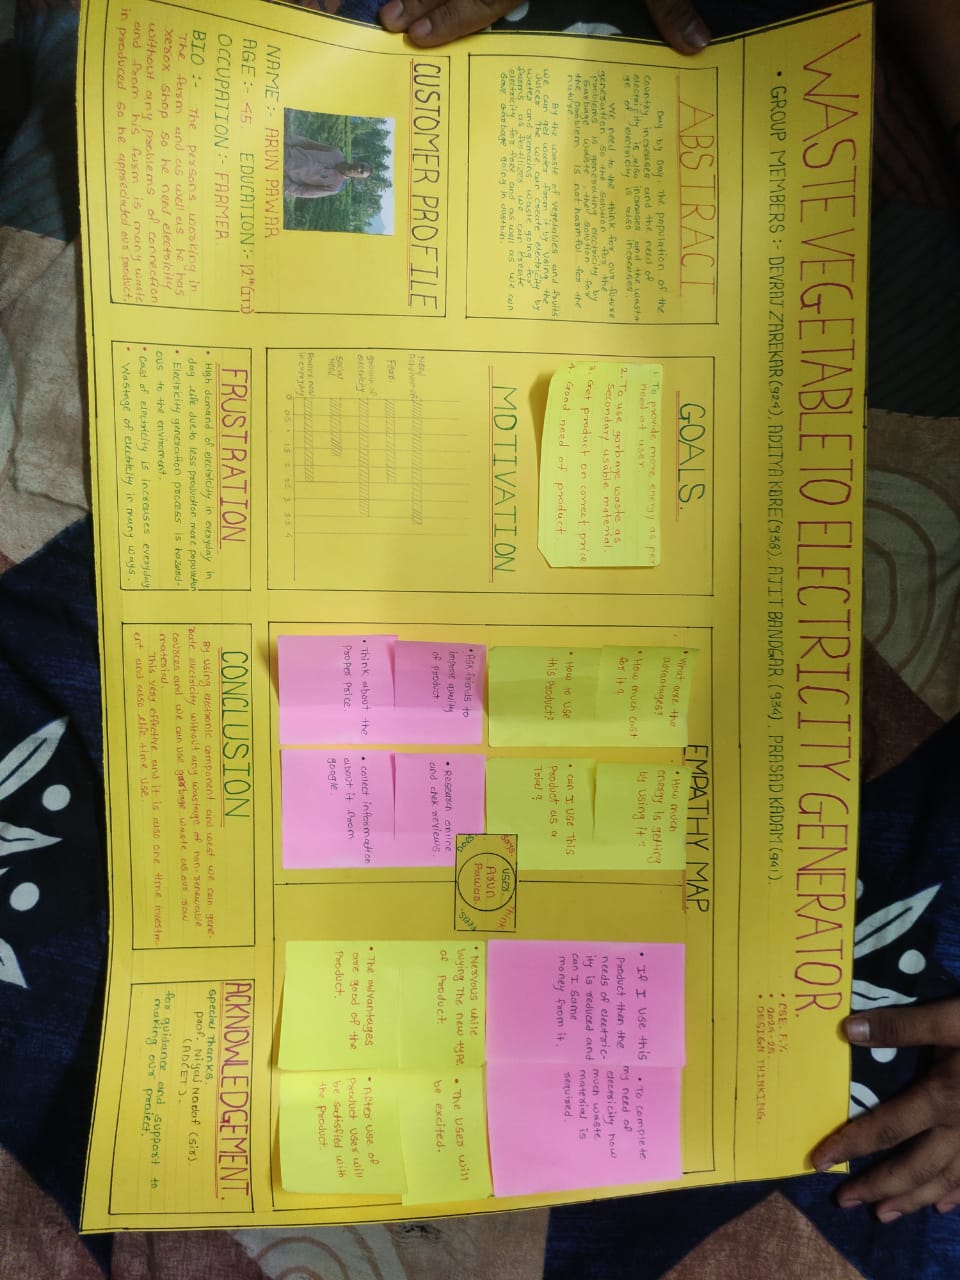 WASTE VEGETABLE TO ELECTRICITY GENERATOR.
• GROUP MEMBERS :- DEVRAJ ZAREKAR(924), ADITYA KORE(938), AJIT BANDGAR (934), PRASAD KADAM(941).
• CSE F.Y.
• 2024-25
• DESIGN THINKING.
ABSTRACT
Day by Day the population of the
country increases and the need of
electricity is also increases and the wasta-
ge of electricity is also increases.
We need to the think for our future
generation so the solution for the
problems is generating electricity by
Garbage waste, the solution for
the problem is not harmful for the
nature.
By the waste of vegetables and fruits
we can get water from it by using the
Juicer. The we can create electricity by
water and remains waste going to
farms as fertilizer we can create
electricity for free and as well as we can
save garbage going in dustbin.
CUSTOMER PROFILE
NAME :- ARUN PAWAR
AGE :- 45 EDUCATION:- 12th
OCCUPATION :- FARMER
BIO :- The persons working in
The farm and as well as he has
xerox shop so he need electricity
without any problems of correction
and from his farm is many waste
in produced so he appreciated our product.
GOALS.
1. To provide more energy as per
need of user.
2. To use garbage waste as
Secondary usable material.
3. Get product on correct price
4. Good need of product
MOTIVATION
Fare.
growth of
electricity
social
need
Power need
in everyday
0 0.5 1 1.5 2 2.5 3 3.5 4
FRUSTRATION
• High demand of electricity in everyday in
day life due to less production more population
• Electricity generation process is hazard-
ous to the enviroment.
• Cost of electricity is increases everyday
• Wastage of electricity in many ways.
EMPATHY MAP
• What are the
advantages?
• How much cost
for it?
• How to use
this Product?
• How much
energy is getting
by using it?
• can I use this
Product as a
Trial?
• Ask friends to
improve quality
of product
• Think about the
Proper price.
• Research online
and chek reviews.
• collect information
about it from
google.
Says
USER
Arun
Pawar
• If I use this
product then the
needs of electric-
ity is reduced and
can I same
money from it.
• To complete
my need of
electricity how
much waste
material is
required.
• Nervous while
buying The new type
of Product
• The advantages
are good of the
Product
• The User will
be excited.
• After use of
Product user will
be satisfied with
the product.
CONCLUSION
By using electronic component and west we can gene-
rate electricity without any wastage of non-renewable
cources and we can use garbage waste as our raw
material.
This very effective and it is also one time investm-
ent and also life time use.
ACKNOWLEDGEMENT.
special Thanks.
prof. Niyaj Nadaf (sir)
(ADCET).
for guidance and support to
making our project.